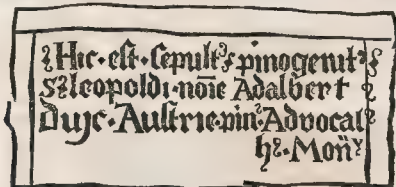 Hic·est·Sepult⁹ pinogenit⁹
S⁊ leopoldi·noīe Adalbert
Dux·Austrie·pin⁹·Advocat⁹
h⁹·Moñ